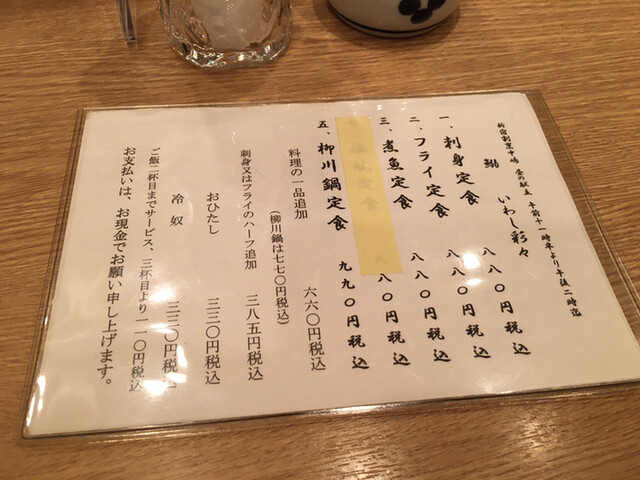 新宿割烹中嶋 昼の献立 午前十一時半より午後二時迄
鰯 いわし彩々
一、刺身定食 八八〇円税込
二、フライ定食 八八〇円税込
三、煮魚定食 八八〇円税込
五、柳川鍋定食 九九〇円税込
料理の一品追加 六六〇円税込
(柳川鍋は七七〇円税込)
刺身又はフライのハーフ追加 三八五円税込
おひたし 三三〇円税込
冷奴 三三〇円税込
ご飯二杯目までサービス、三杯目より一一〇円税込
お支払いは、お現金でお願い申し上げます。